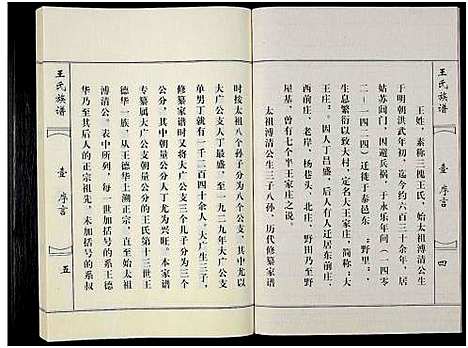 王氏族谱
壹 序言
四
王姓，素称三槐王氏，始太祖溥清公生
于明朝洪武年初，迄今约六百三十余年，居
姑苏阊门，因避兵祸，于永乐年间（一四零
二-一四二四）迁徙于泰邑东：“野里”，
生息繁衍以致大村，定名大王家庄，简称：大
王庄。因人丁昌盛，后有人迁居东前庄、
西前庄，老岸，杨巷头，北庄，野田乃至野
屋基，曾有七个半王家庄之说。
太祖溥清公生三子八孙，历代修纂家谱
时按太祖八个孙子分为八个公支，其中尤以
大广公支人丁最盛，至一九二九年大广公支
单男丁就有一千二百四十余人。大广生三子，
修纂家谱时又将大广公支三个儿子分为三个
公分，其中朝量公分人丁尤为兴旺。本家谱
专纂属大广公支朝量公分的王氏第十三世王
德华一族，从王德华上溯正宗，直至始太祖
溥清公。表中所列，每一世加括号的系王德
华乃至其后人的正宗祖先，未加括号的系叔
王氏族谱
壹 序言
五